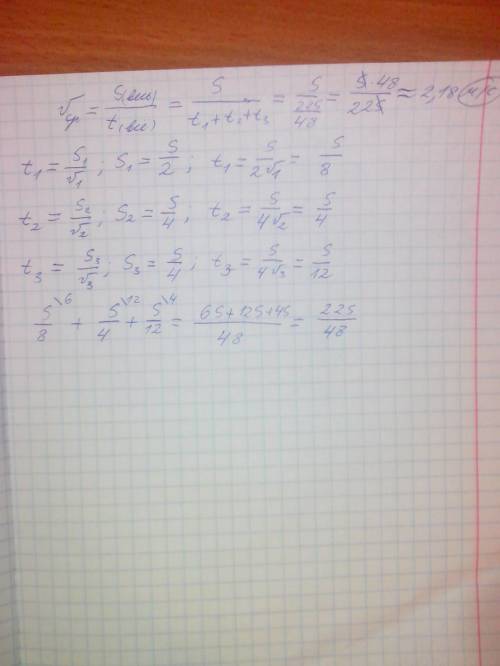 Vср = S(вся)/t(все) = S/(t₁+t₂+t₃) = S/(22S/48) = S·48/22S ≈ 2,18 м/с
t₁ = S₁/V₁; S₁ = S/2; t₁ = S/2V₁ = S/8
t₂ = S₂/V₂; S₂ = S/4; t₂ = S/4V₂ = S/4
t₃ = S₃/V₃; S₃ = S/4; t₃ = S/4V₃ = S/12
S/8 \6 + S/4 \12 + S/12 \4 = 6S+12S+4S/48 = 22S/48